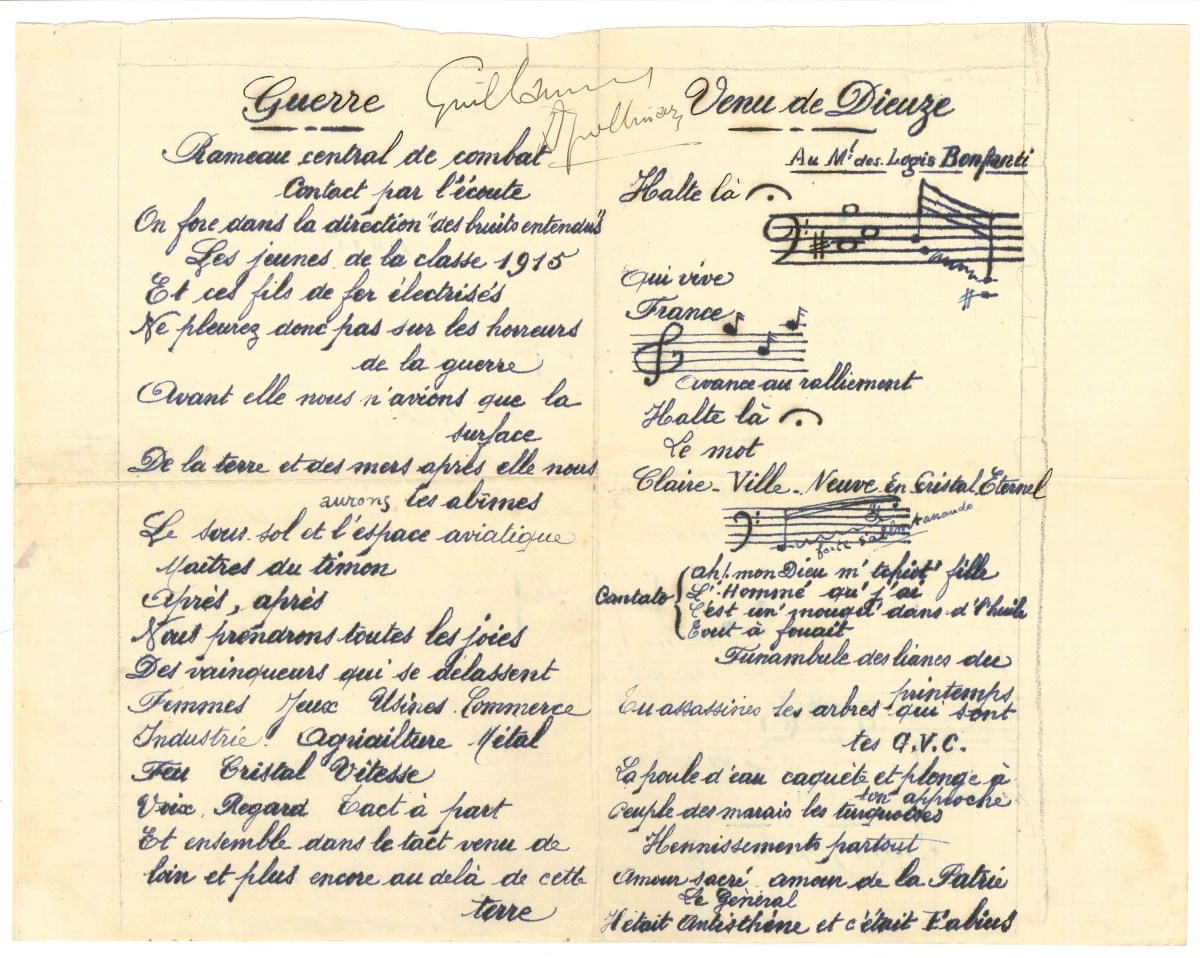 Guerre
Guillaume
Apollinaire
Rameau central de combat
Contact par l'écoute
On fore dans la direction "des bruits entendus"
Les jeunes de la classe 1915
Et ces fils de fer électrisés
Ne pleurez donc pas sur les horreurs
de la guerre
Avant elle nous n'avions que la
surface
De la terre et des mers après elle nous
aurons les abîmes
Le sous-sol et l'espace aviatique
Maîtres du timon
Après, après
Nous prendrons toutes les joies
Des vainqueurs qui se délassent
Femmes Jeux Usines Commerce
Industrie Agriculture Métal
Feu Cristal Vitesse
Voix Regard Tact à part
Et ensemble dans le tact venu de
loin et plus encore au delà de cette
terre
Venu de Dieuze
Au Mˡ des Logis Bonfanti
Halte là
Qui vive
France
Avance au ralliement
Halte là
Le mot
Claire-Ville-Neuve-En Cristal Eternel
forte
Cantato
Ah! mon Dieu m' tchiot' fille
L'Homme qu' j'ai
C'est un' mouqu' dans d' l'huile
Tout à fouait
Funambule des lianes du
printemps
Tu assassines les arbres qui sont
tes G.V.C.
La poule d'eau caquète et plonge à
ton approche
Peuple des marais les turquoises
Hennissements partout
Amour sacré amour de la Patrie
Le Général
Il était Antisthène et c'était Fabius